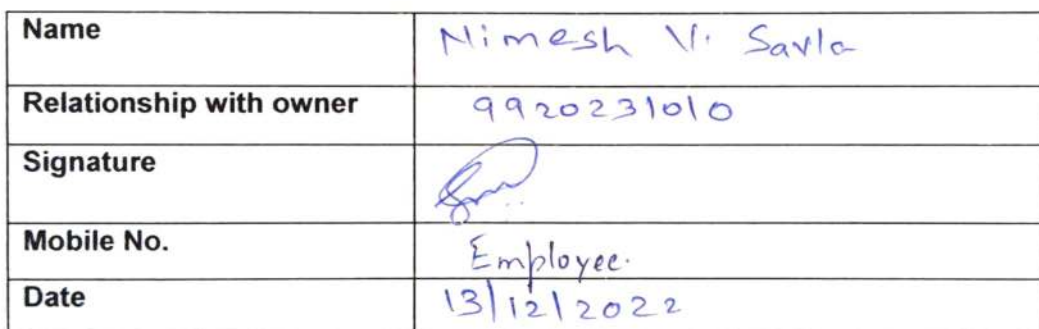 Name Nimesh V. Savla
Relationship with owner 9920231010
Signature
Mobile No. Employee.
Date 13/12/2022